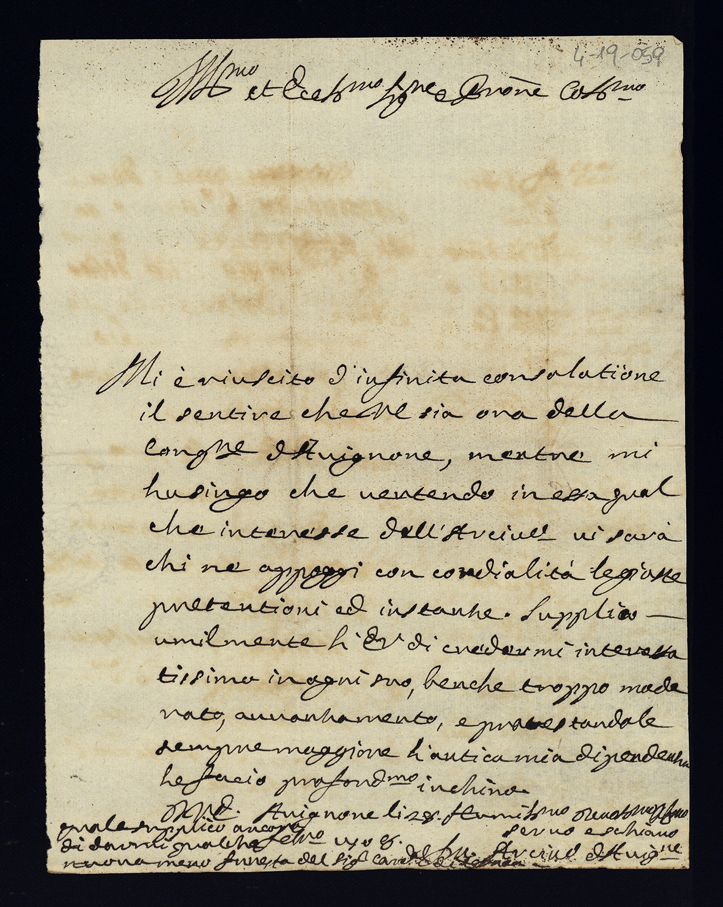 4-19-059
Ill.mo et Ecc.mo Sig.re e Prone Coll.mo
Mi è riuscito d'infinita consolatione
il sentire che VE sia ora della
Congne d'Avignone, mentre mi
lusingo che vertendo in essa qual
che interesse dell'Arcive vi sarà
chi ne appoggi con cordialità le giuste
pretentioni ed instanze. Supplico
umilmente l'EV di credermi interessa
tissimo in ogni suo, benche troppo mode
rato, avvanzamento, e protestandole
sempre maggiore l'antica mia dipendenza
le facio profond.mo inchino.
Avignone li 28
servo e schiavo
quale supplico ancora
di darmi qualche
nuova meno funesta del Sig. Card.